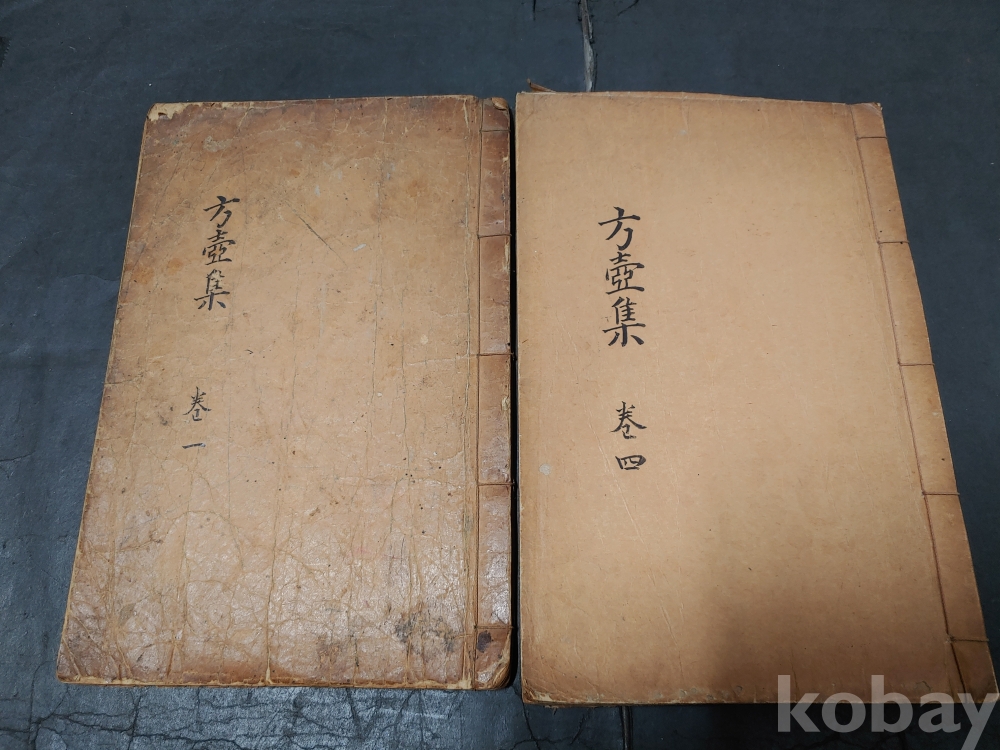 方壺集
卷一
方壺集
卷四
kobay